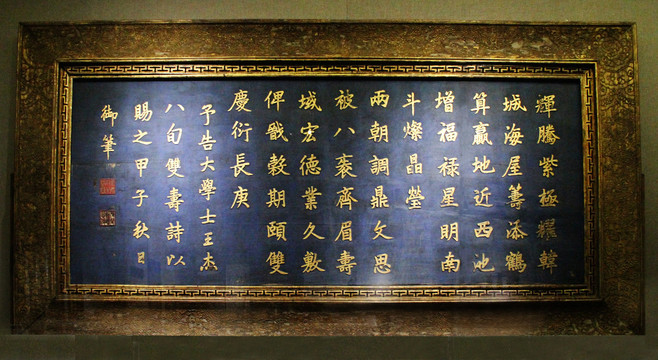 輝騰紫極耀韓
城海屋籌添鶴
算贏地近西池
增福祿星明南
斗燦晶瑩
兩朝調鼎文思
被八袠齊眉壽
域宏德業久敷
俾戩穀期頤雙
慶衍長庚
予告大學士王杰
八旬雙壽詩以
賜之甲子秋日
御筆